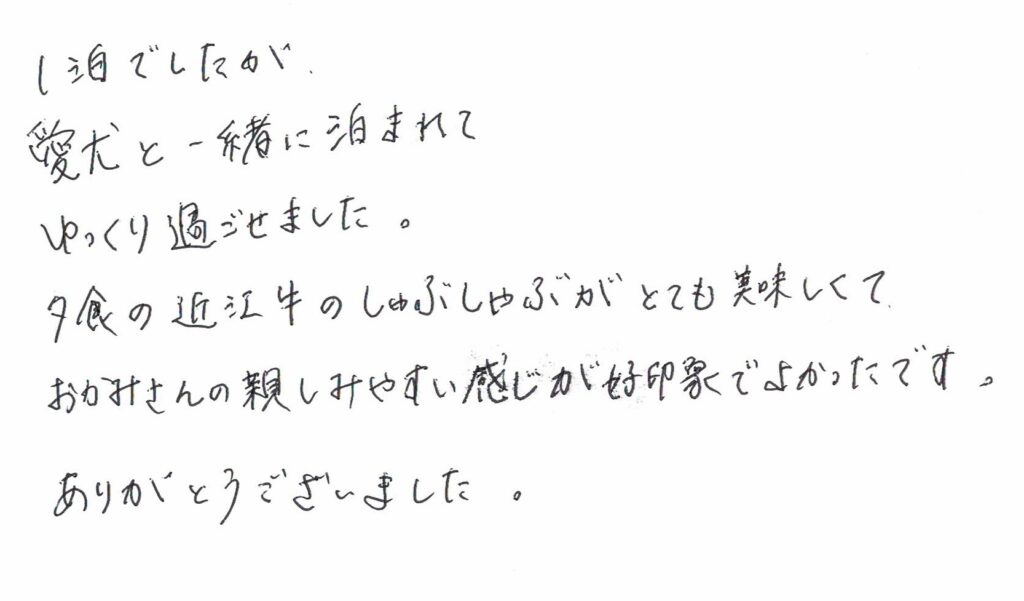 1泊でしたが、
愛犬と一緒に泊まれて
ゆっくり過ごせました。
夕食の近江牛のしゃぶしゃぶがとても美味しくて、
おかみさんの親しみやすい感じが好印象でよかったです。
ありがとうございました。